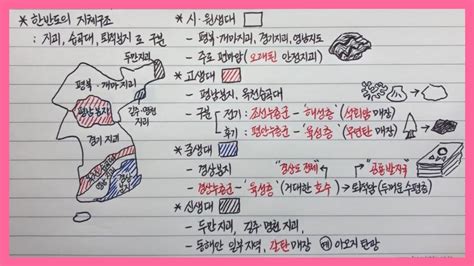 * 한반도의 지체구조
: 지괴, 습곡대, 퇴적분지로 구분
두만지괴
평북·개마지괴
평남분지
길주·명천
지괴
경기 지괴
경상
분지
* 시·원생대
- 평북·개마지괴, 경기지괴, 영남지괴
- 주로 편마암 (오래된 안정지괴)
* 고생대
- 평남분지, 옥천습곡대
- 구분 전기 : 조선누층군 - '해성층' (석회암 매장)
후기 : 평안누층군 - '육성층' (무연탄 매장)
* 중생대
- 경상분지 "경상도 전체" "공룡발자국"
- 경상누층군 - '육성층' (거대한 호수) → 퇴적암 (두꺼운 수평층)
* 신생대
- 두만지괴, 길주·명천지괴,
- 동해안 일부지역, 갈탄 매장 예 아오지 탄광